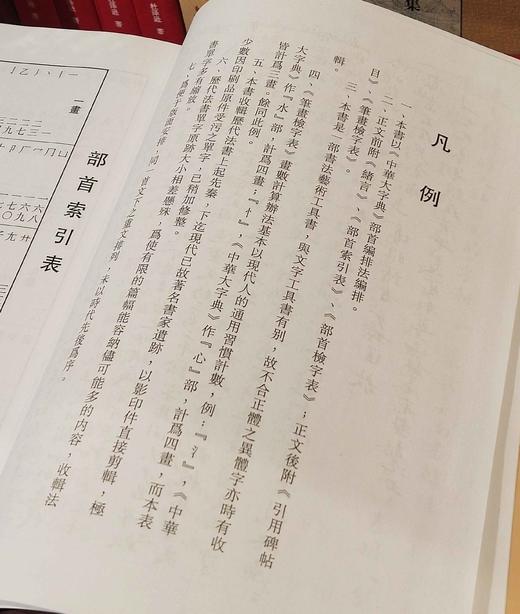 凡例
一、本書以《中華大字典》部首編排法編排。
二、正文前附《緒言》、《部首索引表》、《部首檢字表》；正文後附《引用碑帖
目》、《筆畫檢字表》。
三、本書是一部書法藝術工具書，與文字工具書有别，故不合正體之異體字亦時有收
輯。
四、《筆畫檢字表》畫數計算辦法基本以現代人的通用習慣計數，例：『氵』，《中華
大字典》作『水』部，計爲四畫；『忄』，《中華大字典》作『心』部，計爲四畫，而本表
皆計爲三畫。餘同此例。
五、本書收輯歷代法書上起先秦，下迄現代已故著名書家遺跡，以影印件直接剪輯，極
少數因印刷品原件受污之單字，已稍加修整。
六、歷代法書單字原跡大小相差懸殊，爲使有限的篇幅能容納儘可能多的内容，收輯法
書單字多有縮放。
七、爲便于版面安排，同一首文下之重文排列，未以時代先後爲序。
部首索引表
一畫
集